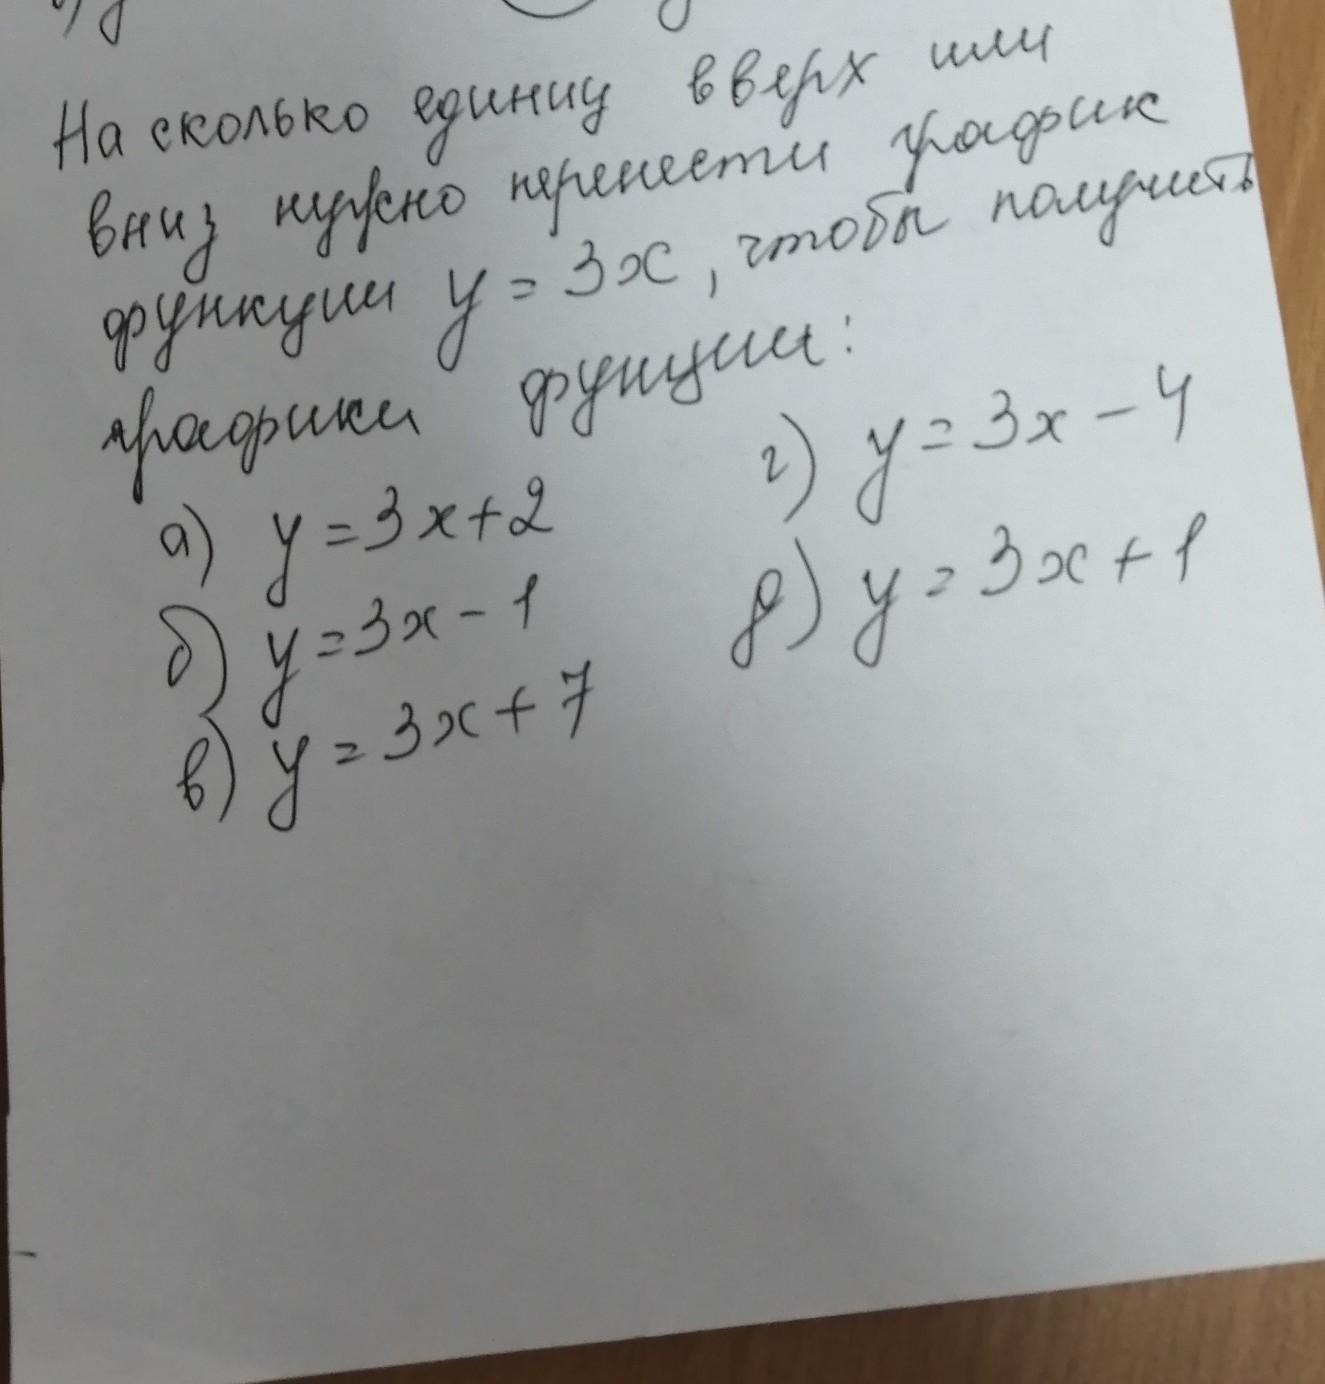 На сколько единиц вверх или
вниз нужно перенести график
функции y = 3x, чтобы получить
графики функции:
а) y = 3x + 2
б) y = 3x - 1
в) y = 3x + 7
г) y = 3x - 4
д) y = 3x + 1